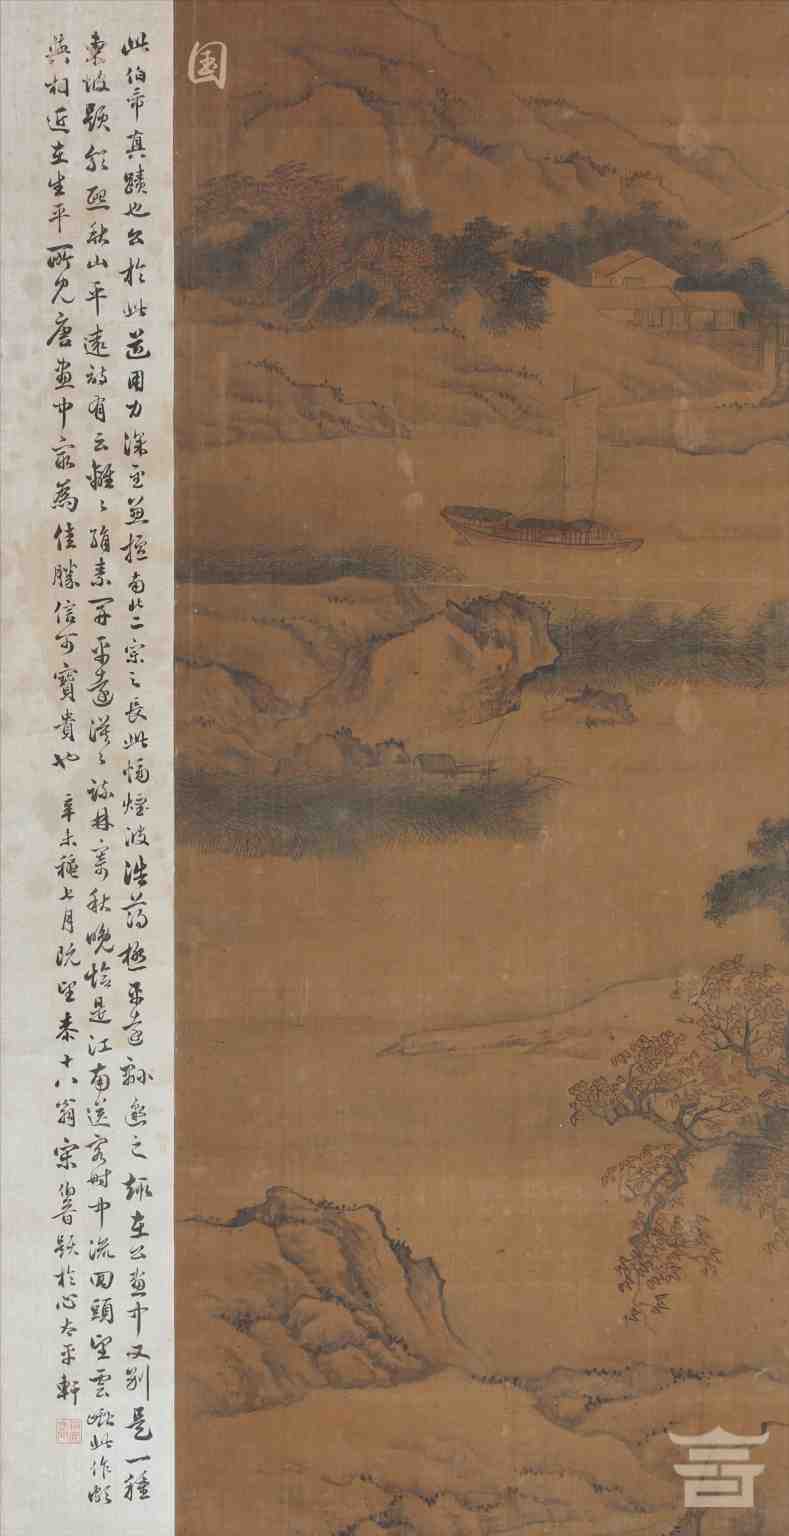 此伯帝真蹟也公於此道用力深至兼擅南北二宗之長此幅煙波浩蕩極平遠緜邈之趣在公畫中又別是一種
東坡題郭熙秋山平遠詩有云離離短素開平遠漠漠疎林寄秋晚恰是江南送客時中流回頭望雲巘此作頗
與相近在生平所見唐畫中最為佳勝信可寶貴也 辛未穐七月既望泰十八翁宋伯魯題於心太平軒
国